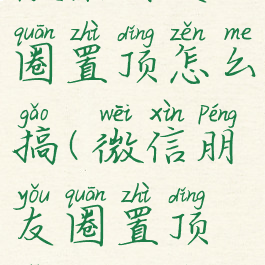 quān zhì dǐng zěn me
圈置顶怎么
gǎo wēi xìn Péng
搞(微信朋
yǒu quān zhì dǐng
友圈置顶